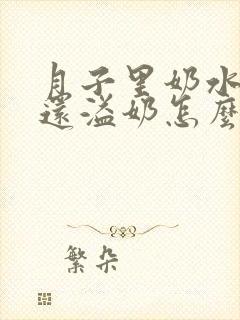 月子里奶水
還溢奶怎麼
繁朵